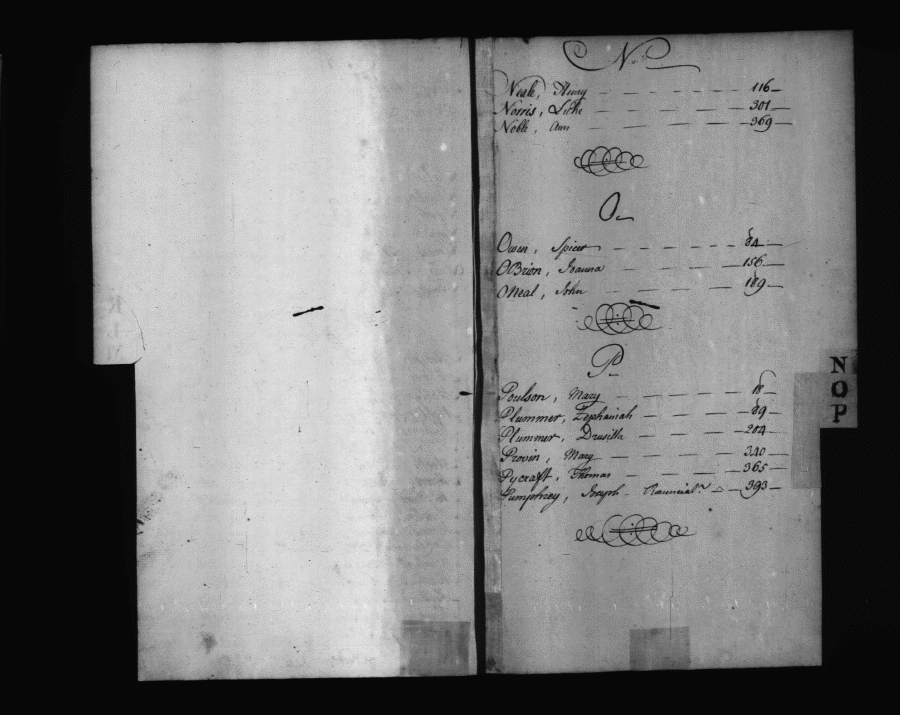 N
Neale, Henry — — — — 116
Norris, — — — — 301
Noble, Ann — — — — 369
O
Owen, Spicer — — — — 84
OBrion, Joanna — — — — 156
ONeal, John — — — — 189
P
Poulson, Mary — — — — 18
Plummer, Zephaniah — — — — 89
Plummer, Drusilla — — — — 204
Provin, Mary — — — — 340
Pycraft, Thomas — — — — 365
Pumphrey, Joseph — — 393
N
O
P
K
L
M